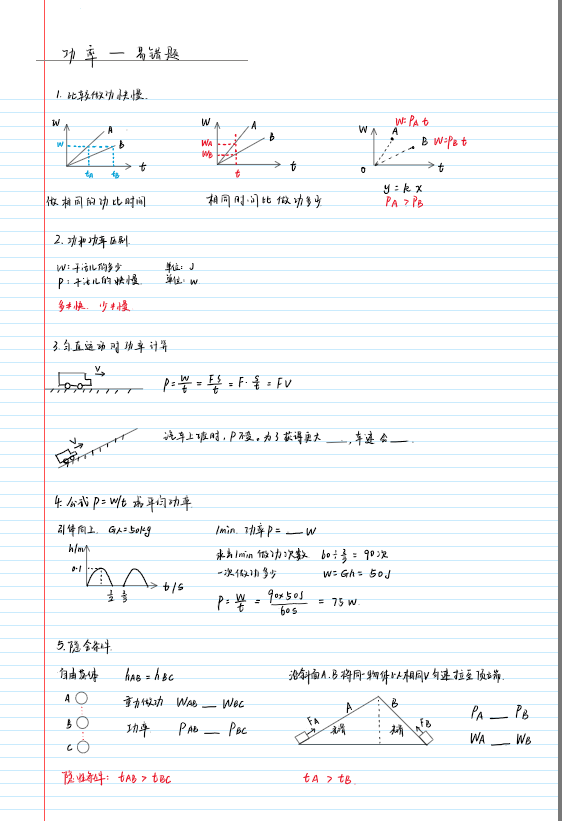 功率 — 易错题
1. 比较做功快慢.
W A B W t tA tB
W A B WA WB t t
W A W=PA t B W=PB t O t
y = k x
PA > PB
做相同的功比时间
相同时间比做功多少
2. 功和功率区别
W: 干活儿的多少 单位: J
P: 干活儿的快慢 单位: W
多≠快 少≠慢
3. 匀直运动时功率计算
V
P = W/t = FS/t = F · S/t = FV
V
汽车上坡时, P不变。为了获得更大 ___, 车速会 ___.
4. 公式 P = W/t 求平均功率
引体向上. G人=50kg 1min. 功率P = ___ W
h/m 0.1 t/s
求出1min 做功次数 60 ÷ 2/3 = 90次
一次做功多少 W=Gh = 50J
P = W/t = 90×50J/60s = 75 W.
5. 隐含条件
自由落体 hAB = hBC
A B C
重力做功 WAB ___ WBC
功率 PAB ___ PBC
隐性条件: tAB > tBC
沿斜面A.B将同一物体以相同V匀速拉至顶端.
A B FA FB 光滑 光滑
PA ___ PB
WA ___ WB
tA > tB